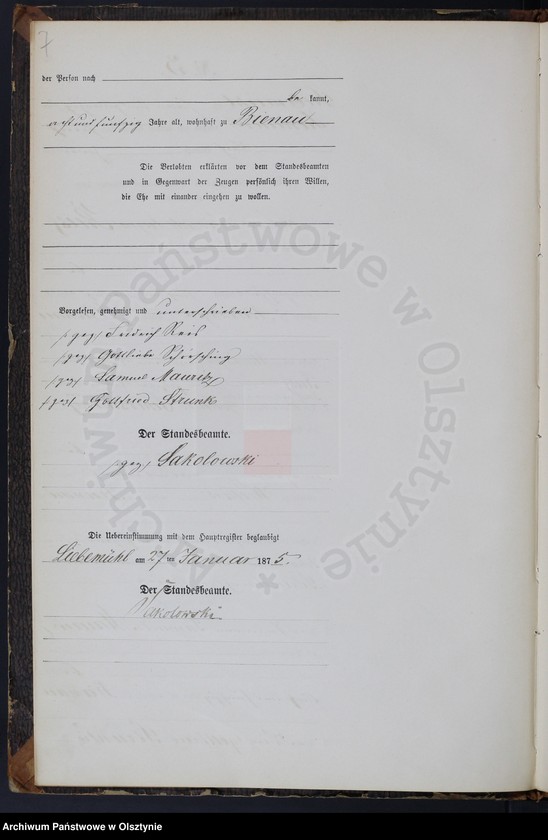 7
der Person nach
be kannt,
acht und fünfzig Jahre alt, wohnhaft zu Bienau
Die Verlobten erklärten vor dem Standesbeamten
und in Gegenwart der Zeugen persönlich ihren Willen,
die Ehe mit einander eingehen zu wollen.
Vorgelesen, genehmigt und unterschrieben
(gez) Friedrich Reis
(gez) Gottliebe
(gez) Samuel Mauritz
(gez) Gottfried Strunk
Der Standesbeamte.
(gez) Sakolowski
Die Uebereinstimmung mit dem Hauptregister beglaubigt
Liebemühl am 27 ten Januar 1875.
Der Standesbeamte.
Sakolowski
Archiwum Państwowe w Olsztynie *
Archiwum Państwowe w Olsztynie